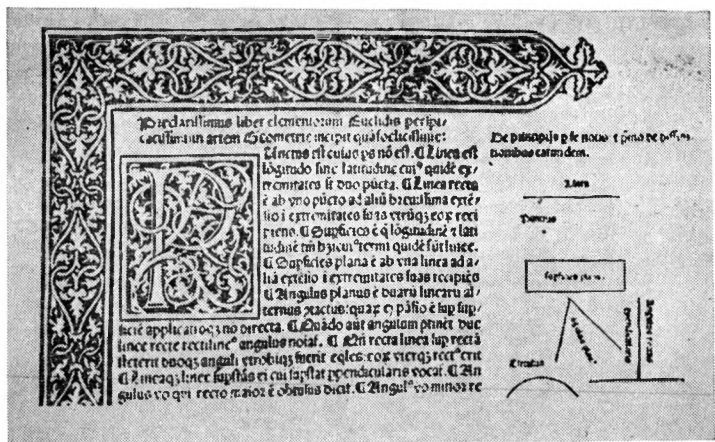 Preclarissimus liber elementorum Euclidis perspi-
cacissimi: in artem Geometrie incipit quāfoelicissime:
Punctus est cuius ps nō est. ¶ Linea est
lōgitudo sine latitudine cui⁹ quidē ex-
tremitates sūt duo pūcta. ¶ Linea recta
ē ab vno pūcto ad aliū breuissima extē-
sio ī extremitates suas vtrūqꝫ eoꝝ reci
piens. ¶ Supficies ē q̄ lōgitudinē ⁊ lati
tudinē tm̄ hꝫ: cui⁹ termi quidē sūt linee.
¶ Supficies plana ē ab vna linea ad a-
liā extēsio ī extremitates suas recipiēs
¶ Angulus planus ē duarū linearū al-
ternus ꝯtactus: quaꝝ expāsio ē sup sup-
ficiē applicatioqꝫ nō directa. ¶ Quādo aūt angulum ꝯtinēt due
linee recte rectiline⁹ angulus noiat̄. ¶ Qn̄ recta linea sup rectā
steterit duoqꝫ anguli vtrobiqꝫ fuerit eq̄les: eoꝝ vterqꝫ rect⁹ erit
¶ Lineaqꝫ linee supstās ei cui supstat ppendicularis vocat̄. ¶ An
gulus vo qui recto maior ē obtusus dicit̄. ¶ Angul⁹ vo minor re
De principijs p se notis: ⁊ pmo de
nibus earundem.
Linea
Punctus
Supficies plana
Circulus